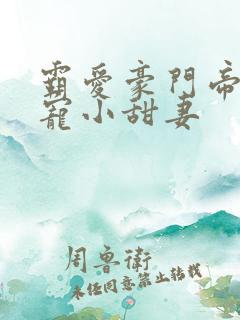 霸愛豪門帝
寵小甜妻
周魯衛
未任同意禁止轉載